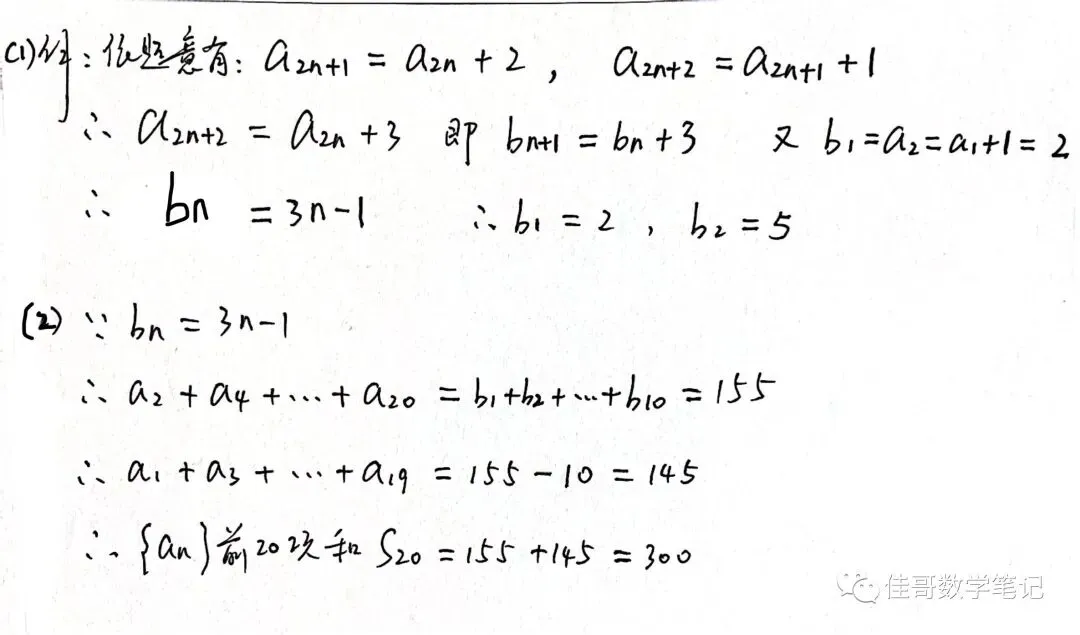 (1)解：依题意有：a₂ₙ₊₁ = a₂ₙ + 2 , a₂ₙ₊₂ = a₂ₙ₊₁ + 1
∴ a₂ₙ₊₂ = a₂ₙ + 3 即 bₙ₊₁ = bₙ + 3 又 b₁ = a₂ = a₁ + 1 = 2
∴ bₙ = 3n - 1 ∴ b₁ = 2 , b₂ = 5
(2) ∵ bₙ = 3n - 1
∴ a₂ + a₄ + ... + a₂₀ = b₁ + b₂ + ... + b₁₀ = 155
∴ a₁ + a₃ + ... + a₁₉ = 155 - 10 = 145
∴ {aₙ}前20项和 S₂₀ = 155 + 145 = 300
佳哥数学笔记